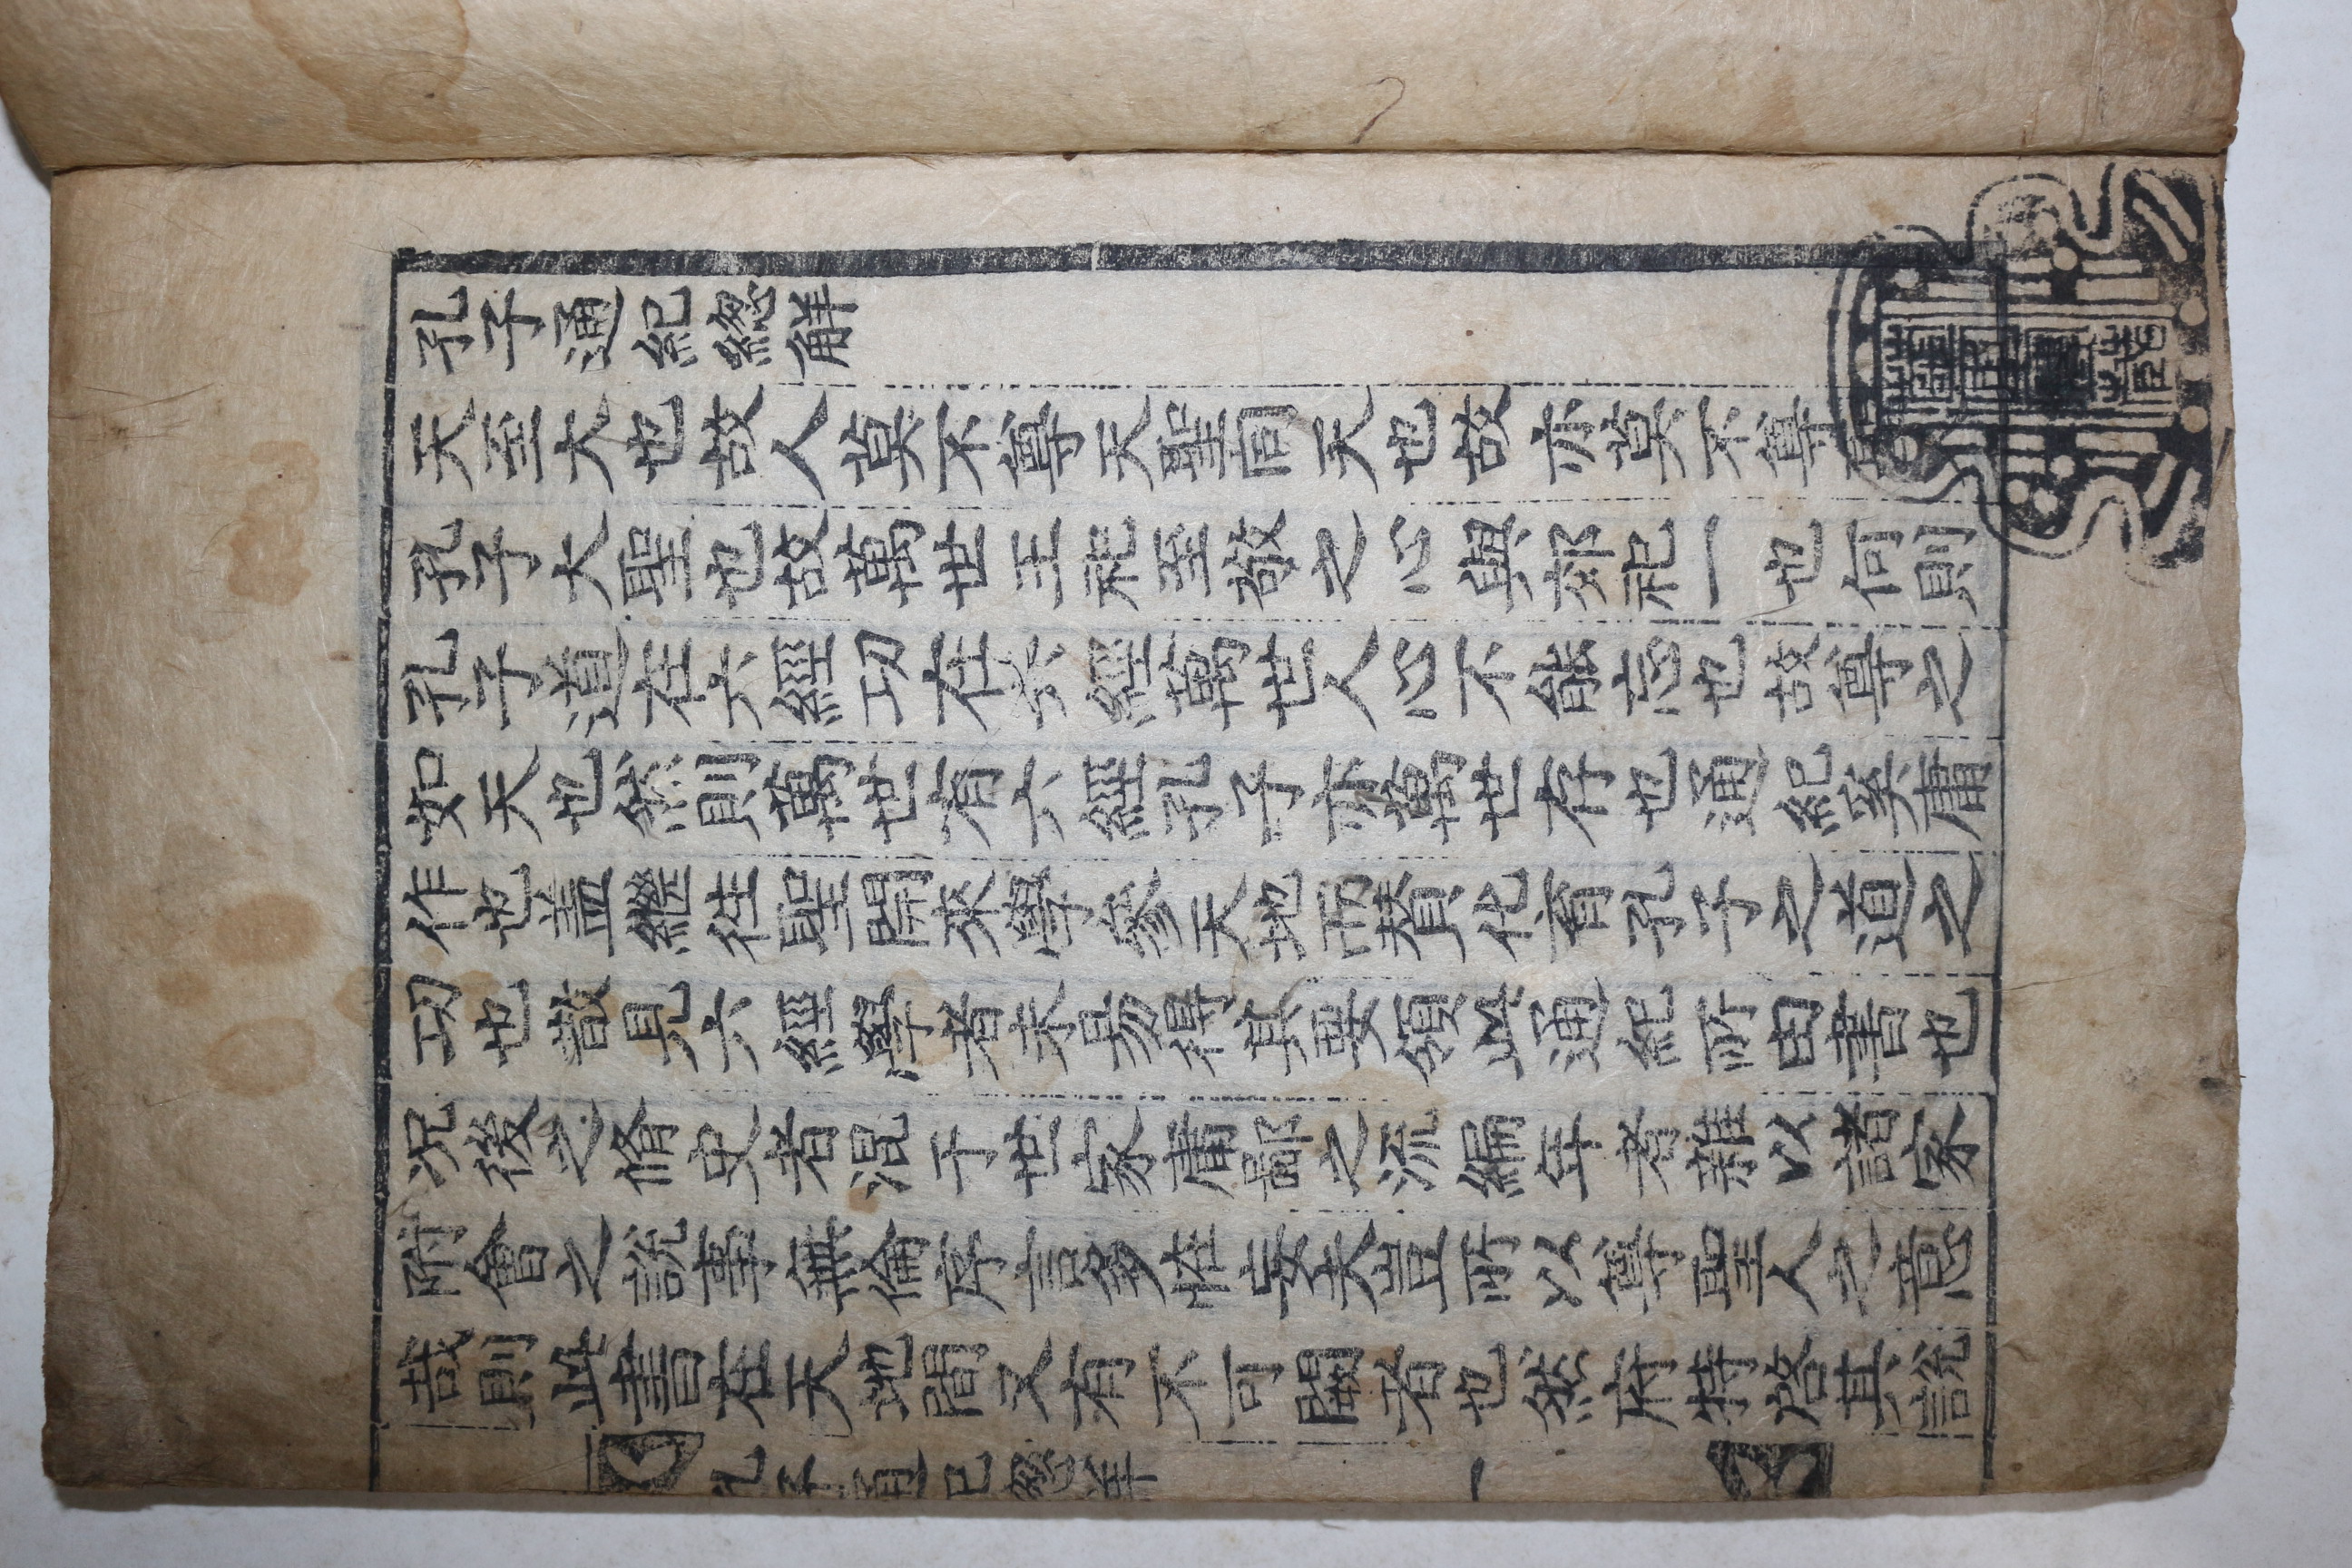 孔子通紀緫觧
天至大也故人莫不尊天聖同天也故亦莫不尊
孔子大聖也故萬世王祀至敬之心與郊祀一也何則
孔子道在六經功在六經萬世人心不能忘也故尊之
如天也然則萬世有六經孔子亦萬世存也通紀奚庸
作也盖繼徃聖開来學參天地而賛化育孔子之道之
功也散見六經學者未易得其要領此通紀所由書也
况後之脩史者混于世家舊部之流編年者雜以諸家
附會之說事無倫序言多恠妄夫豈所以尊聖人之意
哉則此書在天地間又有不可闕者也然府特啓其說
孔子通紀緫觧 一